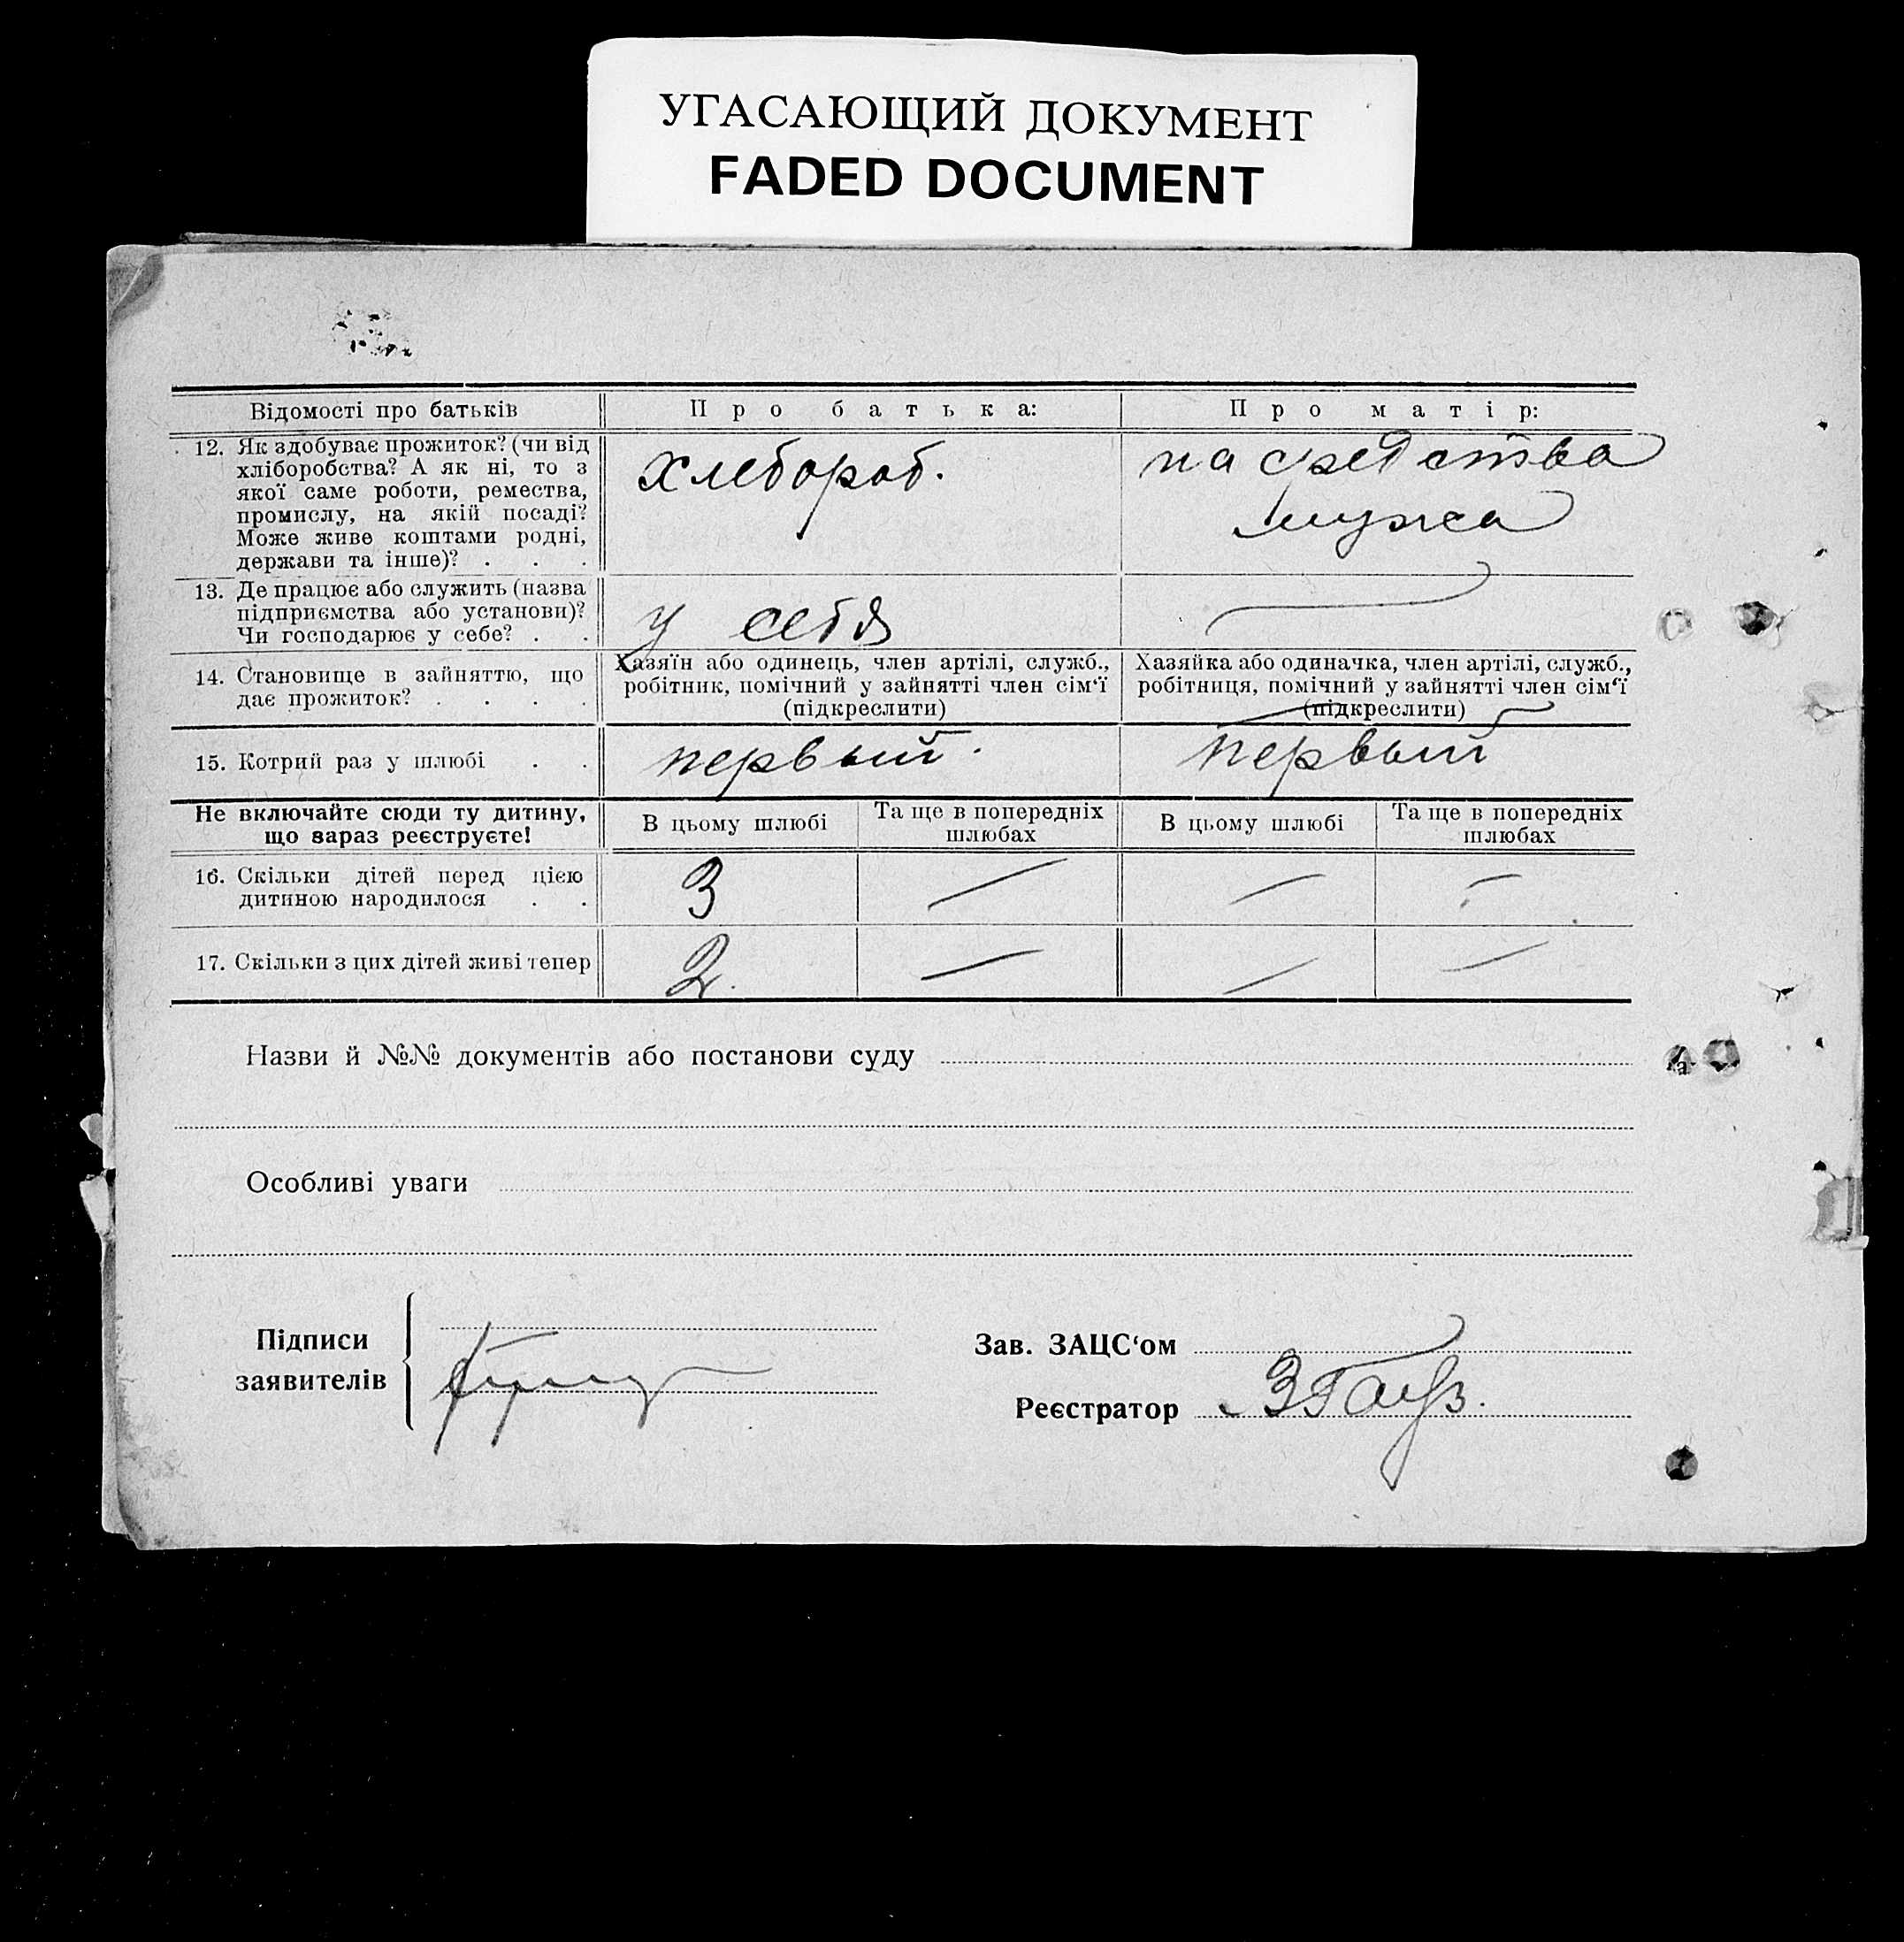 УГАСАЮЩИЙ ДОКУМЕНТ
FADED DOCUMENT
Відомості про батьків
Про батька:
Про матір:
12. Як здобуває прожиток? (чи від
хліборобства? А як ні, то з
якої саме роботи, ремества,
промислу, на якій посаді?
Може живе коштами родні,
держави та інше)? . . .
хлебороб.
на средства
мужа
13. Де працює або служить (назва
підприємства або установи)?
Чи господарює у себе? . .
у себя
14. Становище в зайняттю, що
дає прожиток? . . . .
Хазяїн або одинець, член артілі, служб.,
робітник, помічний у зайнятті член сім'ї
(підкреслити)
Хазяйка або одиначка, член артілі, служб.,
робітниця, помічний у зайнятті член сім'ї
(підкреслити)
15. Котрий раз у шлюбі . .
первый.
первый
Не включайте сюди ту дитину,
що зараз реєструєте!
В цьому шлюбі
Та ще в попередніх
шлюбах
В цьому шлюбі
Та ще в попередніх
шлюбах
16. Скільки дітей перед цією
дитиною народилося . .
3 — — —
17. Скільки з цих дітей живі тепер
2. — — —
Назви й №№ документів або постанови суду
Особливі уваги
Підписи
заявителів
Зав. ЗАЦС'ом
Реєстратор